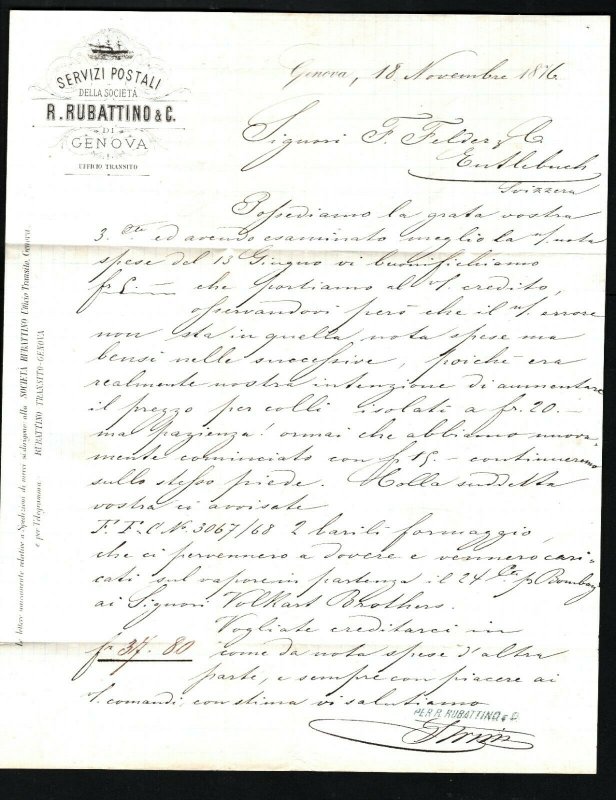 SERVIZI POSTALI
DELLA SOCIETÀ
R. RUBATTINO & C.
DI
GENOVA
UFFICIO TRANSITO
Genova, 18 Novembre 1876
Signori F. Felder & C.
Entlebuch
Svizzera
Possediamo la grata vostra
3 cte ed avendo esaminato meglio la n/. nota
spese del 13 Giugno vi buonifichiamo
fr 5.— che portiamo al v/. credito,
osservandovi però che il n/. errore
non sta in quella nota spese ma
bensì nelle successive, poichè era
realmente nostra intenzione di aumentare
il prezzo per colli isolati a fr. 20.—
ma pazienza! ormai che abbiamo nuova-
mente cominciato con fr 15.— continueremo
sullo stesso piede. Colla suddetta
vostra ci avvisate
F. F-C No 3067/68 2 barili formaggio,
che ci pervennero a dovere e vennero cari-
cati sul vapore in partenza il 24 Ct p Bombay
ai Signori Volkart Brothers.
Vogliate creditarci in
fr 37. 80 come da nota spese d'altra
parte, e sempre con piacere ai
v/. comandi, con stima vi salutiamo
PER R. RUBATTINO & C.
Le lettere unicamente relative a Spedizioni di merci si dirigono alla SOCIETÀ RUBATTINO Ufficio Transito, Genova.
e per Telegramma RUBATTINO TRANSITO-GENOVA